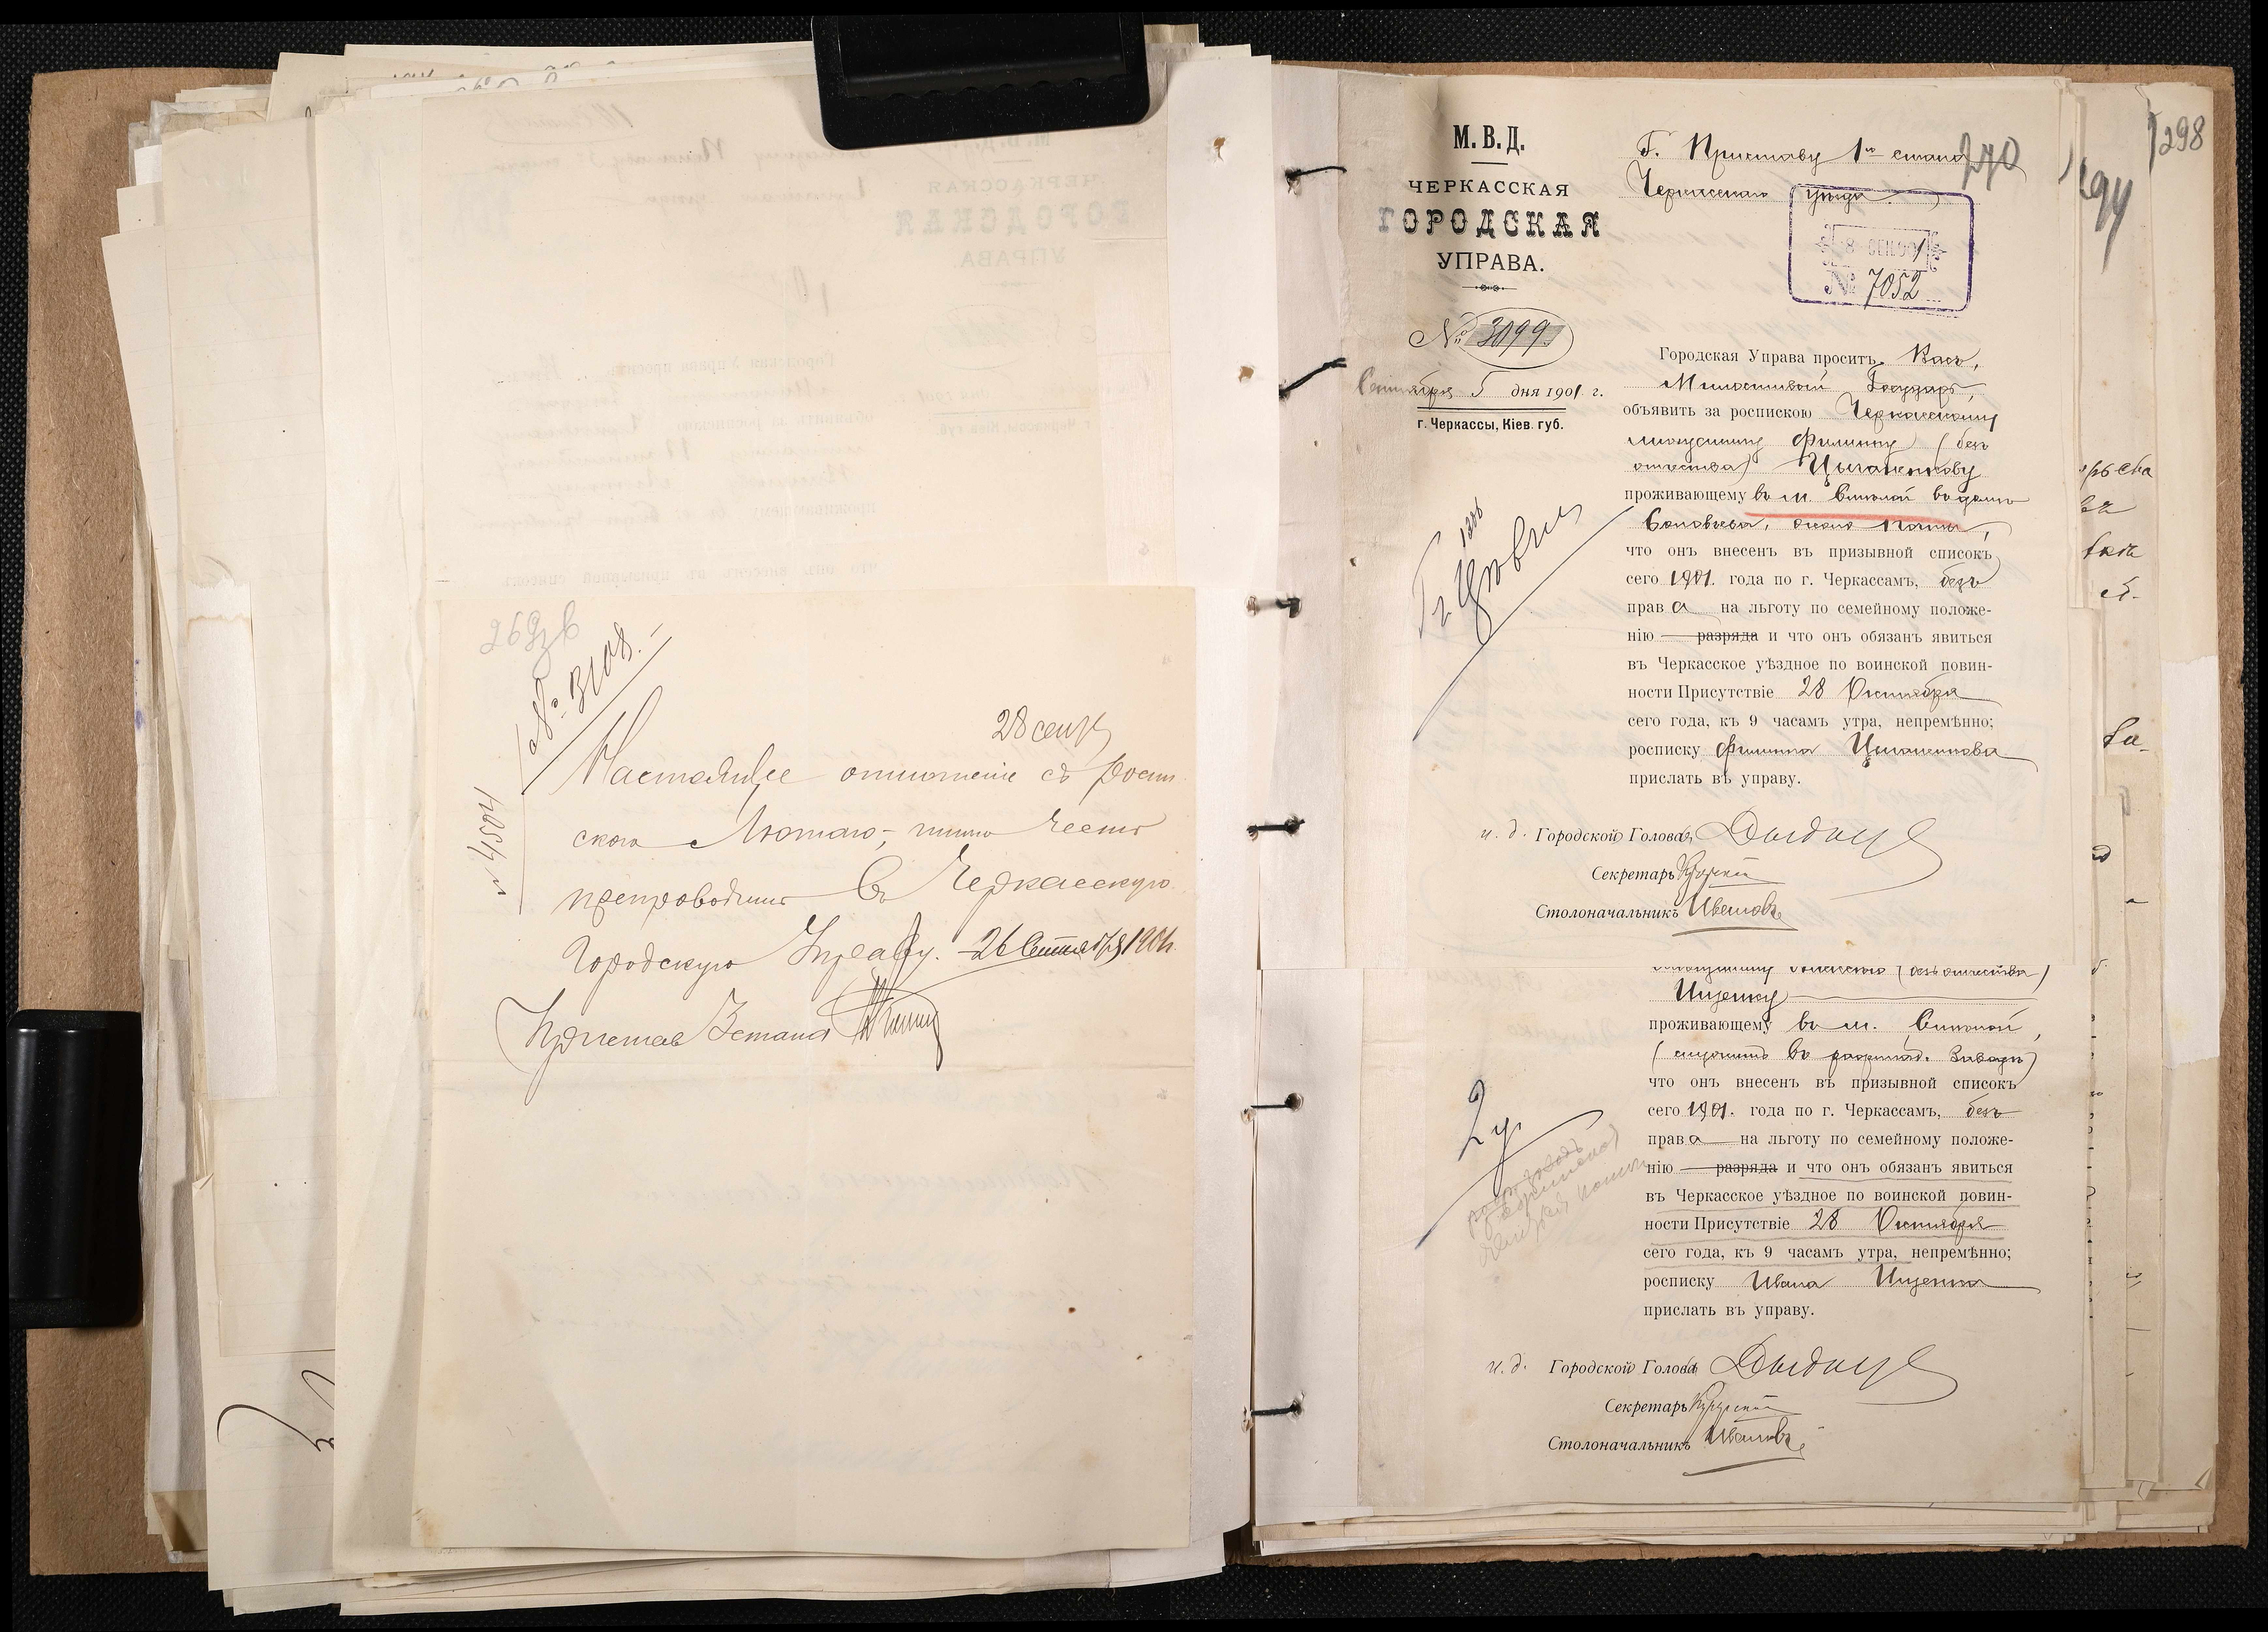 269 об
№ 3108.
28 сент
№ 4550
Настоящее отношение съ роспи
скою Лютаго, при чемъ
препроводить въ Черкасскую
Городскую Управу. 26 Сентября 1901 г.
Приставъ 3 стана
М. В. Д.
ЧЕРКАССКАЯ
ГОРОДСКАЯ
УПРАВА.
№ 3099
Сентября 5 дня 1901 г.
г. Черкассы, Кіев. губ.
Г. Приставу 1го стана
Черкасскаго уѣзда.
270
294
298
8 СЕН 901
№ 7052
Городская Управа проситъ Васъ,
Милостивый Государь,
объявить за роспискою Черкасскому
мѣщанину Филиппу (безъ
отчества) Цыганкову
проживающему въ м. Смѣлой въ домѣ
Соловьева, около почты,
что онъ внесенъ въ призывной списокъ
сего 1901. года по г. Черкассамъ, безъ
права на льготу по семейному положе-
нію разряда и что онъ обязанъ явиться
въ Черкасское уѣздное по воинской повин-
ности Присутствіе 28 Октября
сего года, къ 9 часамъ утра, непремѣнно;
росписку Филиппа Цыганкова
прислать въ управу.
и. д. Городской Голова
Секретарь
Столоначальникъ Ивановъ
(безъ отчества)
Ищенку
проживающему въ м. Смѣлой,
(служитъ въ рафинад. Заводѣ)
что онъ внесенъ въ призывной списокъ
сего 1901. года по г. Черкассамъ, безъ
права на льготу по семейному положе-
нію разряда и что онъ обязанъ явиться
въ Черкасское уѣздное по воинской повин-
ности Присутствіе 28 Октября
сего года, къ 9 часамъ утра, непремѣнно;
росписку Ивана Ищенка
прислать въ управу.
2 у.
и. д. Городской Голова
Секретарь
Столоначальникъ Ивановъ